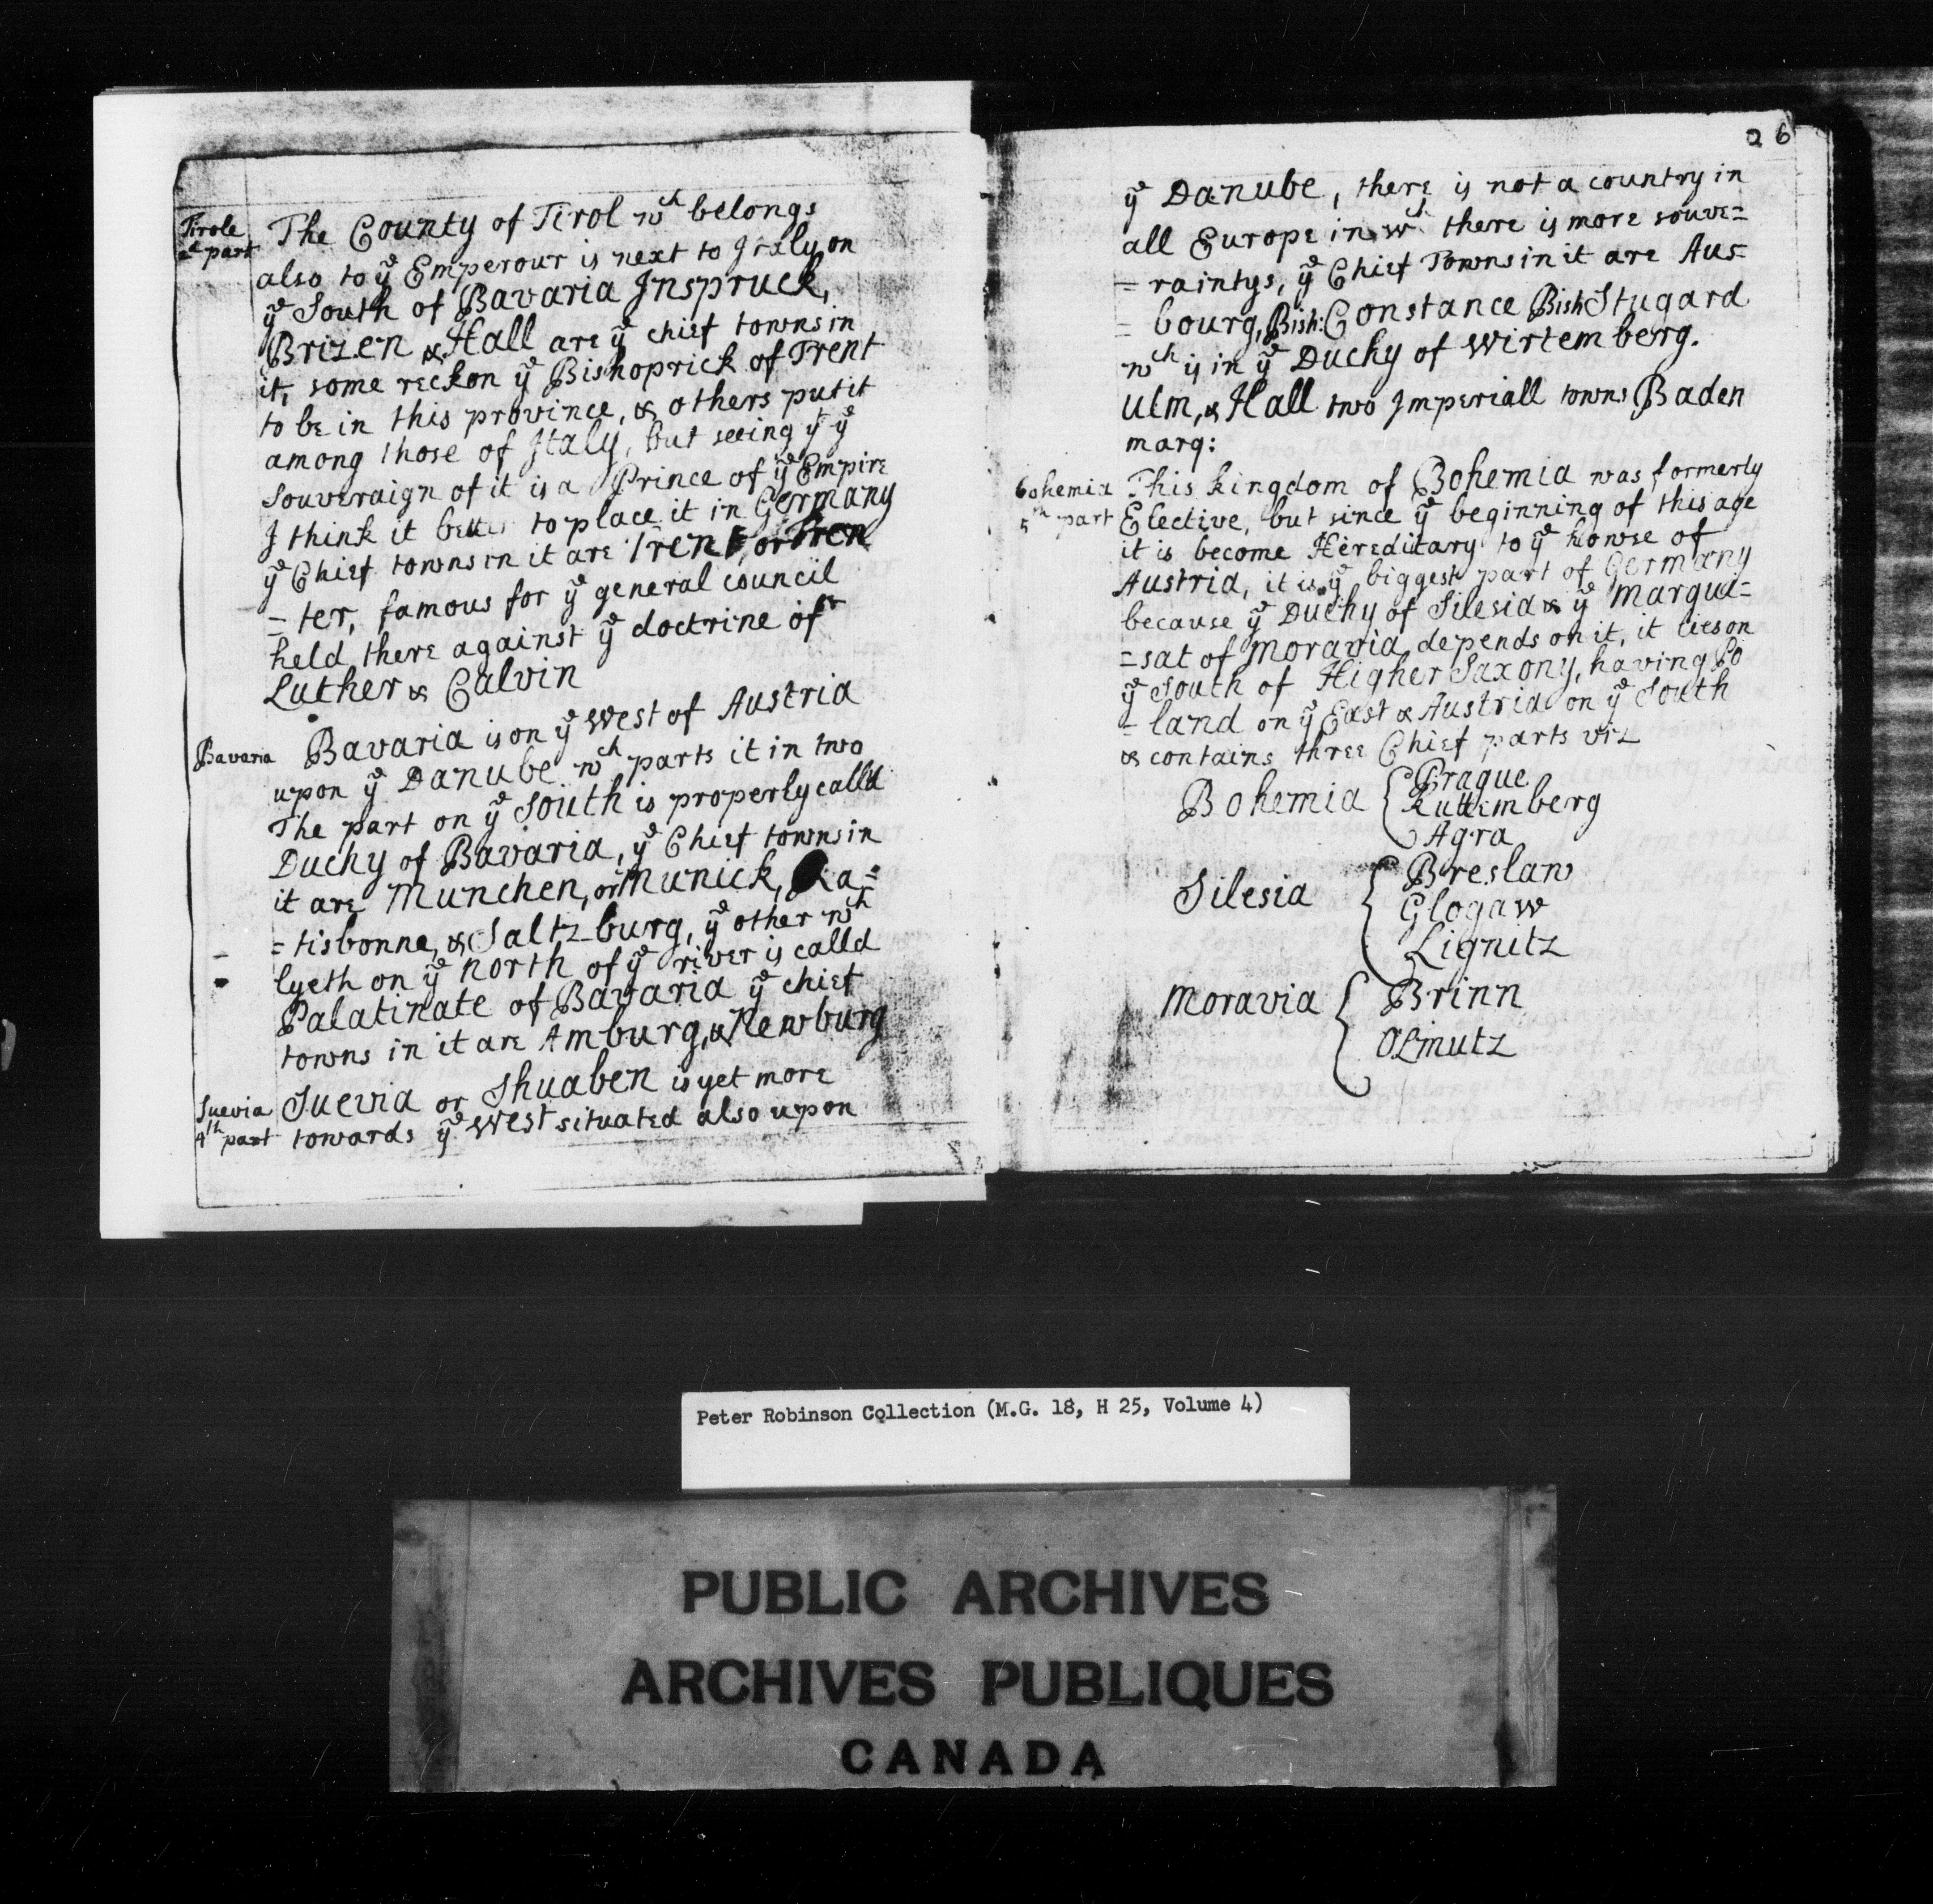 Tirole
2d part
The County of Tirol wch belongs
also to ye Emperour is next to Italy on
ye South of Bavaria Inspruck,
Brizen & Hall are ye chief towns in
it, some reckon ye Bishoprick of Trent
to be in this province, & others put it
among those of Italy, but seeing yt ye
Souveraign of it is a Prince of ye Empire
I think it better to place it in Germany
ye Chief towns in it are Trent, or Tren
=ter, famous for ye general council
held there against ye doctrine of
Luther & Calvin
Bavaria
Bavaria is on ye West of Austria
upon ye Danube wch parts it in two
The part on ye South is properly calld
Duchy of Bavaria, ye Chief towns in
it are Munchen, or Munick, Ra=
=tisbonne, & Saltz-burg, ye other wch
lyeth on ye North of ye river is calld
Palatinate of Bavaria ye chief
towns in it are Amburg, & Newburg
Suevia
4th part
Suevia or Shuaben is yet more
towards ye West situated also upon
26
ye Danube, there is not a country in
all Europe in wch there is more souve=
=raintys, ye Chief Towns in it are Aus=
=bourg, Bish: Constance Bish Stugard
wch is in ye Duchy of Wirtemberg.
Ulm, & Hall two Imperiall towns Baden
marq:
Bohemia
5th part
This kingdom of Bohemia was formerly
Elective, but since ye beginning of this age
it is become Hereditary to ye howse of
Austria, it is ye biggest part of Germany
because ye Duchy of Silesia & ye Marqui=
=sat of Moravia depends on it, it lies on
ye South of Higher Saxony, having Po
=land on ye East & Austria on ye South
& contains three Chief parts viz
Bohemia { Prague
Kuttemberg
Agra
Silesia { Breslaw
Glogaw
Lignitz
Moravia { Brinn
Olmutz
Peter Robinson Collection (M.G. 18, H 25, Volume 4)
PUBLIC ARCHIVES
ARCHIVES PUBLIQUES
CANADA